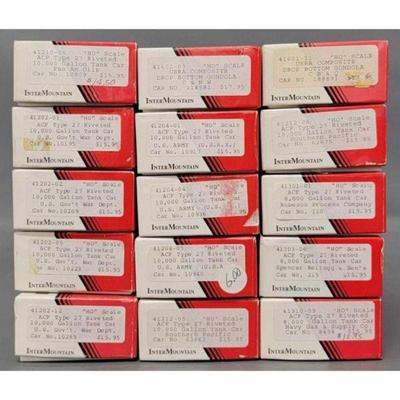 41210-06 "HO" Scale
ACF Type 27 Riveted
10,000 Gallon Tank Car
Pan Am Oils
Car No. $15.95
INTERMOUNTAIN
"HO" SCALE
USRA COMPOSITE
DROP BOTTOM GONDOLA
Car No. $17.95
INTERMOUNTAIN
"HO" SCALE
USRA COMPOSITE
DROP BOTTOM GONDOLA
INTERMOUNTAIN
41202-01 "HO" Scale
ACF Type 27 Riveted
10,000 Gallon Tank Car
U.S. Gov't War Dept.
Car No. 10195 $15.95
INTERMOUNTAIN
41204-01 "HO" Scale
ACF Type 27 Riveted
10,000 Gallon Tank Car
U.S. ARMY
Car No. $15.95
INTERMOUNTAIN
"HO" Scale
ACF Type 27 Riveted
10,000 Gallon Tank Car
Southern Pacific
$15.95
INTERMOUNTAIN
41202-02 "HO" Scale
ACF Type 27 Riveted
10,000 Gallon Tank Car
U.S. Gov't War Dept.
Car No. 10209 $15.95
INTERMOUNTAIN
41204-04 "HO" Scale
ACF Type 27 Riveted
10,000 Gallon Tank Car
U.S. ARMY
Car No. 10936 $15.95
INTERMOUNTAIN
"HO" Scale
ACF Type 27 Riveted
8,000 Gallon Tank Car
Company
$15.95
INTERMOUNTAIN
41202-05 "HO" Scale
ACF Type 27 Riveted
10,000 Gallon Tank Car
U.S. Gov't War Dept.
Car No. 10228 $15.95
INTERMOUNTAIN
"HO" Scale
ACF Type 27 Riveted
10,000 Gallon Tank Car
U.S. ARMY
Car No. 10940
6.00
INTERMOUNTAIN
"HO" Scale
ACF Type 27 Riveted
8,000 Gallon Tank Car
Spencer Kellogg & Son's
Car No. 215 $15.95
INTERMOUNTAIN
41202-12 "HO" Scale
ACF Type 27 Riveted
10,000 Gallon Tank Car
U.S. Gov't War Dept.
Car No. 10289 $15.95
INTERMOUNTAIN
41212-05 "HO" Scale
ACF Type 27 Riveted
10,000 Gallon Tank Car
Southern Pacific
Car No. $15.95
INTERMOUNTAIN
"HO" Scale
ACF Type 27 Riveted
8,000 Gallon Tank Car
Navy Gas & Supply CO
Car No. $15.95
INTERMOUNTAIN